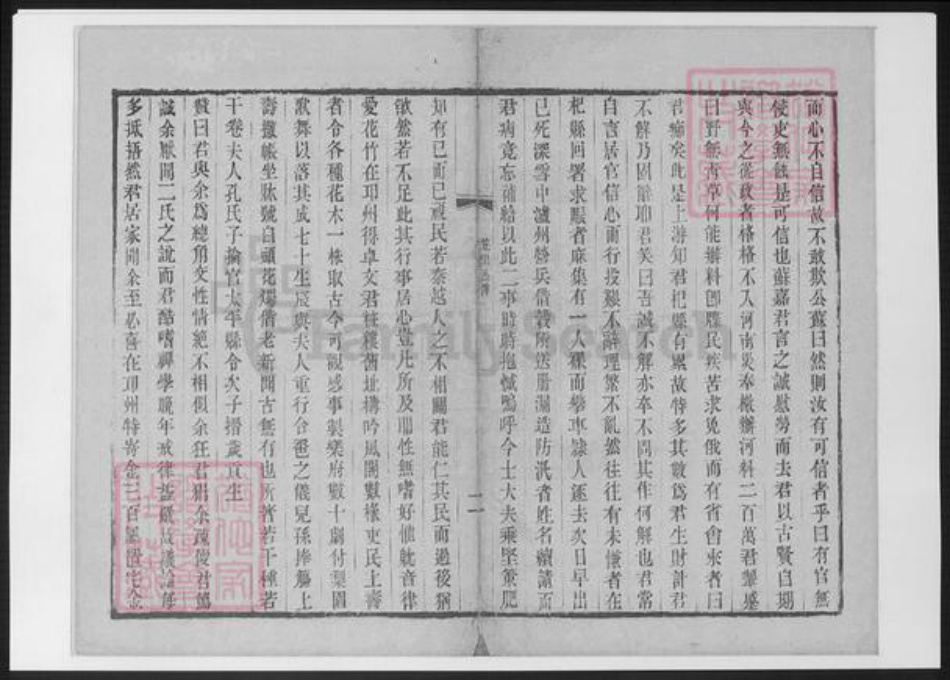 而心不自信故不敢欺公蘇曰然則汝有可信者乎曰有官無
使吏無蝕是可信也蘇嘉君言之誠慰勞而去君以古賢自期
與今之從政者格格不入河南災奉檄辦河料二百萬君蹙
曰野無青草何能辦料卽牒民疾苦求免俄而有省會來者曰
君痴矣此是上游知君杞縣有累故特多其數爲君生財計君
不解乃固辭耶君笑曰吾誠不解亦卒不問其作何解也君常
自言居官信心而行投艱不辭理繁不亂然往往有未慊者在
杞縣回署求賑者麻集有一人裸而攀車隸人逐去次日早出
已死深雪中瀘州營兵借穀所送册漏造防汛者姓名續請而
君病竟忘補給以此二事時時抱憾嗚呼今士大夫乘堅策肥
知有已而已視民若秦越人之不相關君能仁其民而過後猶
欿然若不足此其行事居心豈凡所及耶性無嗜好惟躭音律
愛花竹在邛州得卓文君妝樓舊址構吟風閣數椽吏民上壽
者令各種花木一株取古今可觀感事製樂府數十劇付梨園
歌舞以落其成七十生辰與夫人重行合卺之儀兒孫捧觴上
壽撤帳坐牀號白頭花燭借老新聞古無有也所著若干種若
干卷夫人孔氏子掄官太平縣令次子搢歲貢生
贊曰君與余爲總角交性情絶不相似余狂君狷余疎俊君篤
誠余厭聞二氏之說而君酷嗜禪學晚年戒律益嚴故議論每
多抵捂然君居家聞余至必喜在邛州特寄金三百
二
Family Search